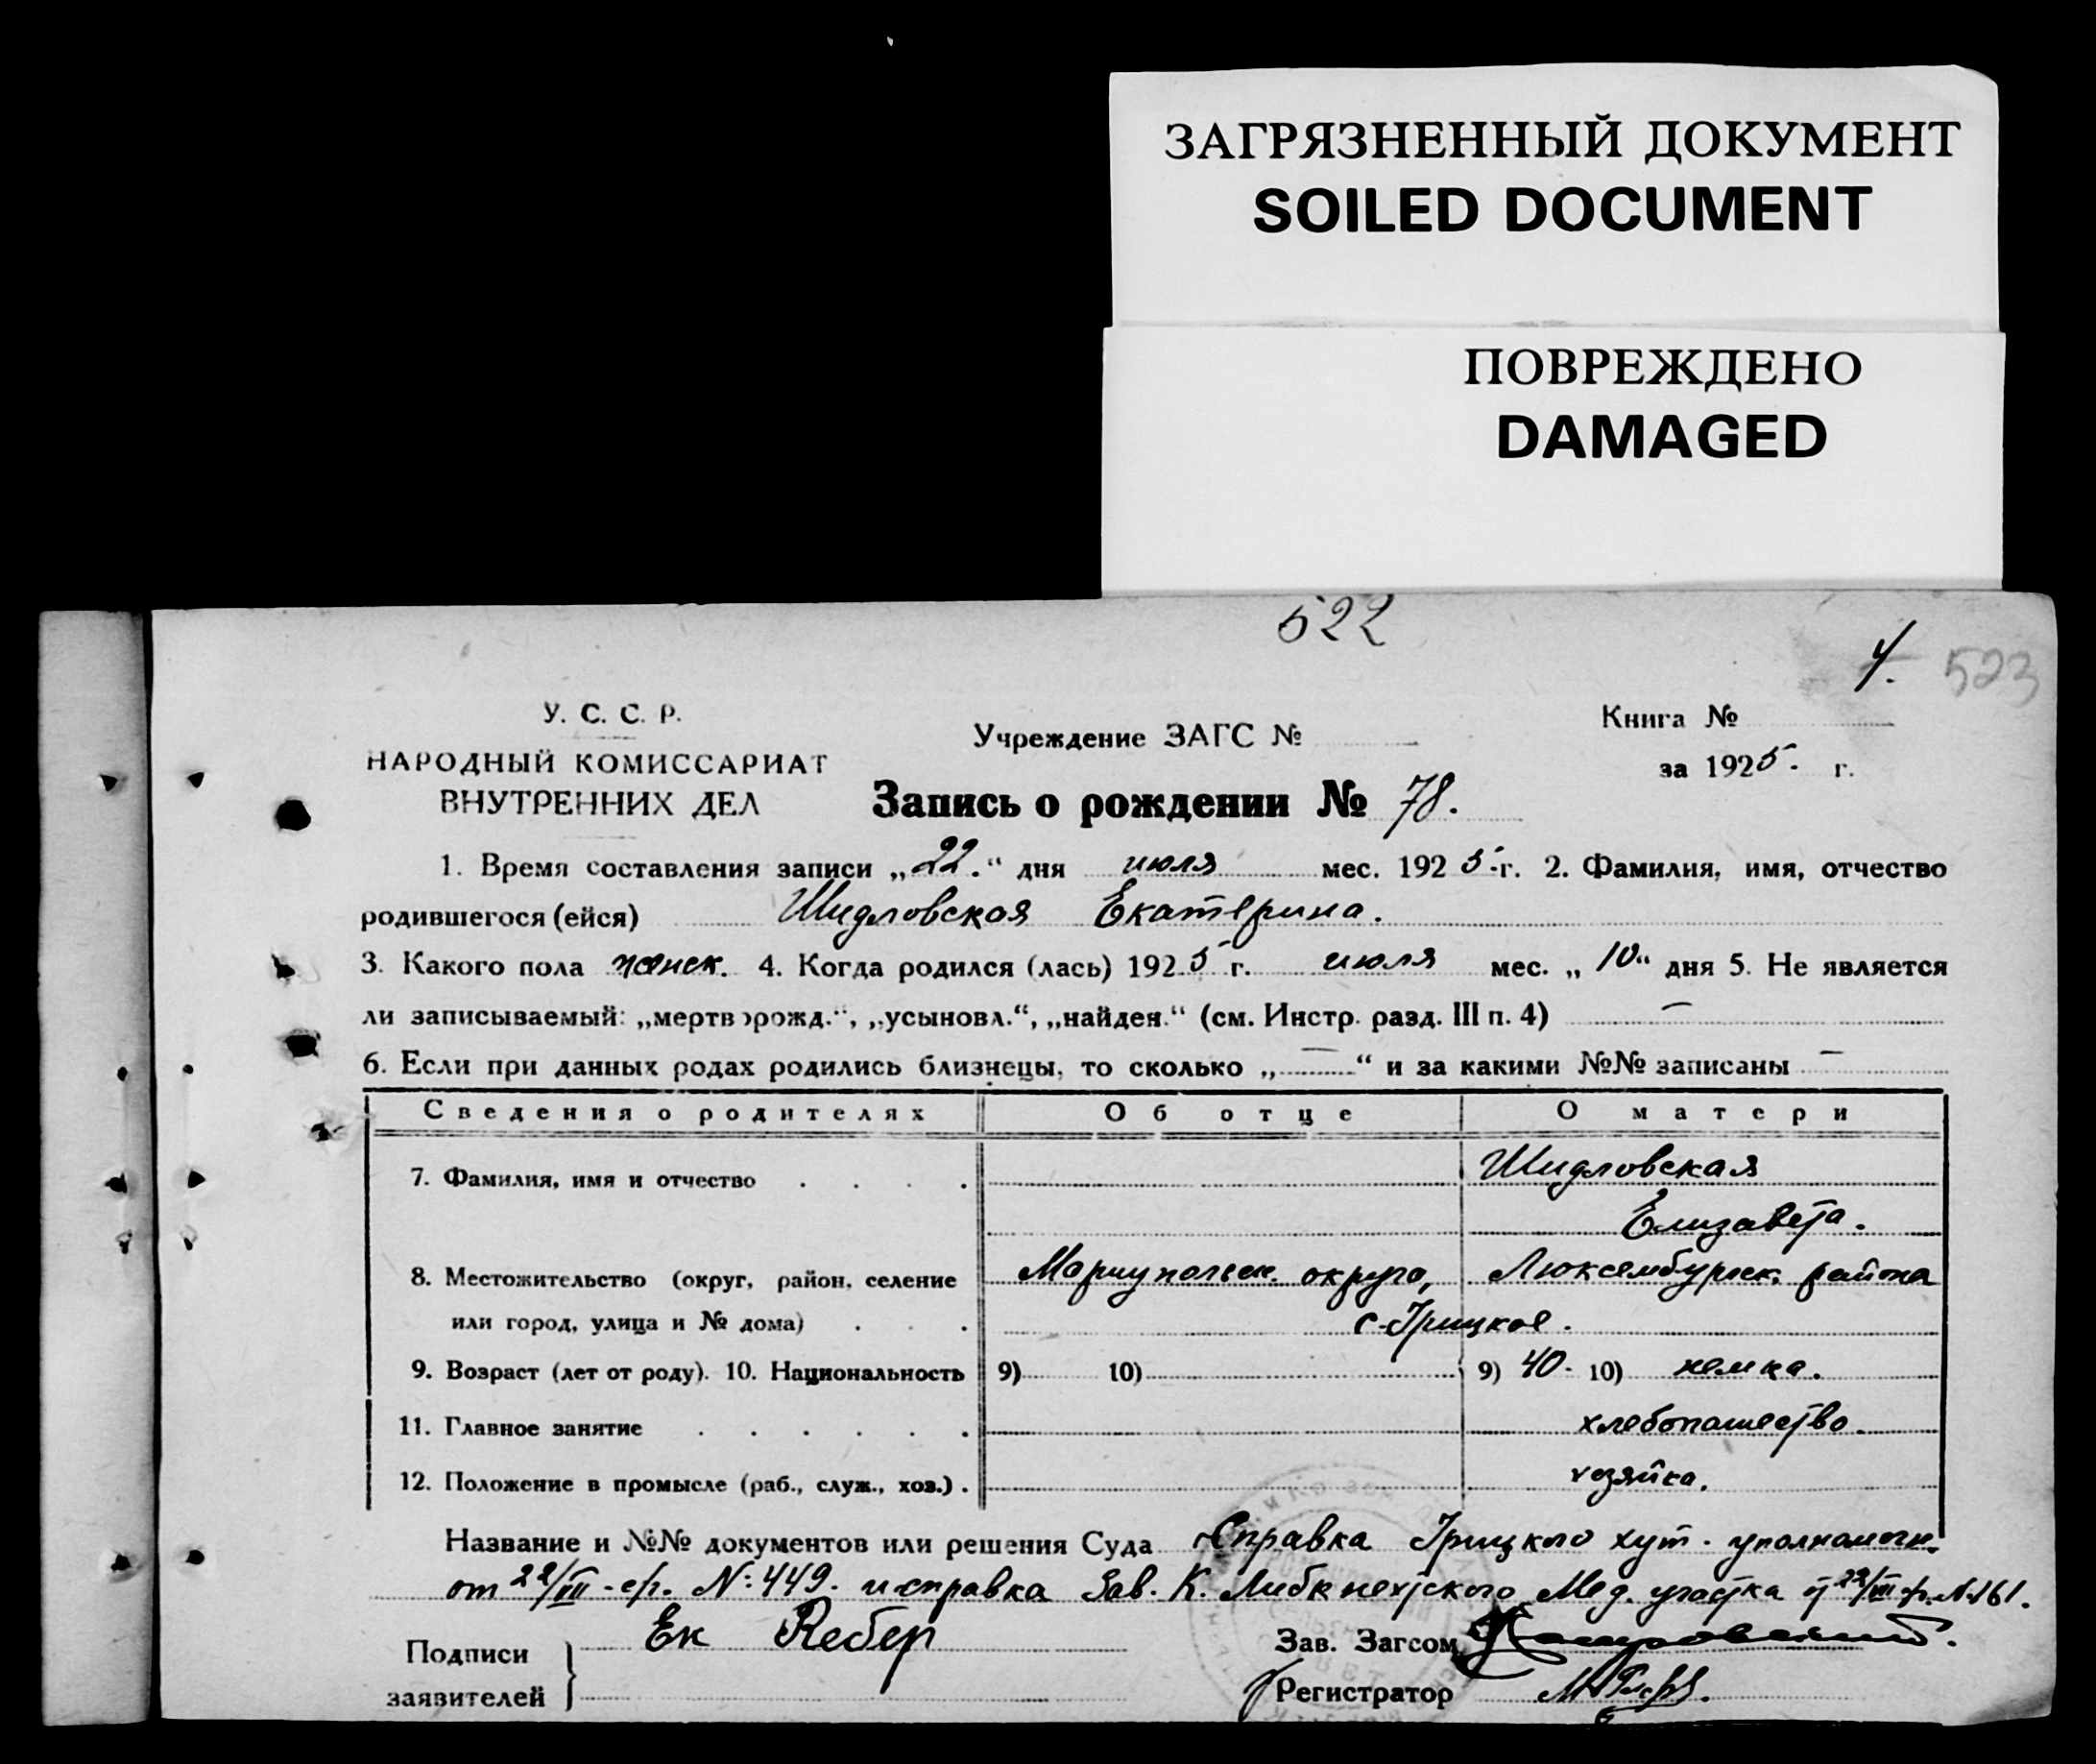 ЗАГРЯЗНЕННЫЙ ДОКУМЕНТ
SOILED DOCUMENT
ПОВРЕЖДЕНО
DAMAGED
522
4. 523
У. С. С. Р.
НАРОДНЫЙ КОМИССАРИАТ
ВНУТРЕННИХ ДЕЛ
Учреждение ЗАГС №
Книга №
за 1925. г.
Запись о рождении № 78.
1. Время составления записи „22.“ дня июля мес. 1925 г. 2. Фамилия, имя, отчество
родившегося (ейся) Шидловская Екатерина.
3. Какого пола женск. 4. Когда родился (лась) 1925 г. июля мес. „10“ дня 5. Не является
ли записываемый: „мертворожд.“, „усыновл.“, „найден.“ (см. Инстр. разд. III п. 4) —
6. Если при данных родах родились близнецы, то сколько „—“ и за какими №№ записаны —
Сведения о родителях Об отце О матери
7. Фамилия, имя и отчество Шидловская
Елизавета.
8. Местожительство (округ, район, селение Мариупольск. округа, Люксембургск. района
или город, улица и № дома) с-Грицкое.
9. Возраст (лет от роду). 10. Национальность 9) 10) 9) 40. 10) немка.
11. Главное занятие хлебопашество.
12. Положение в промысле (раб., служ., хоз.) хозяйка.
Название и №№ документов или решения Суда Справка Грицкого хут. уполномочн.
от 22/VII-с/г. №:449. и справка Зав. К. Либкнехтского Мед. участка от 22/VII с/г. №161.
Подписи
заявителей
Ек Ребер
Зав. Загсом
Регистратор